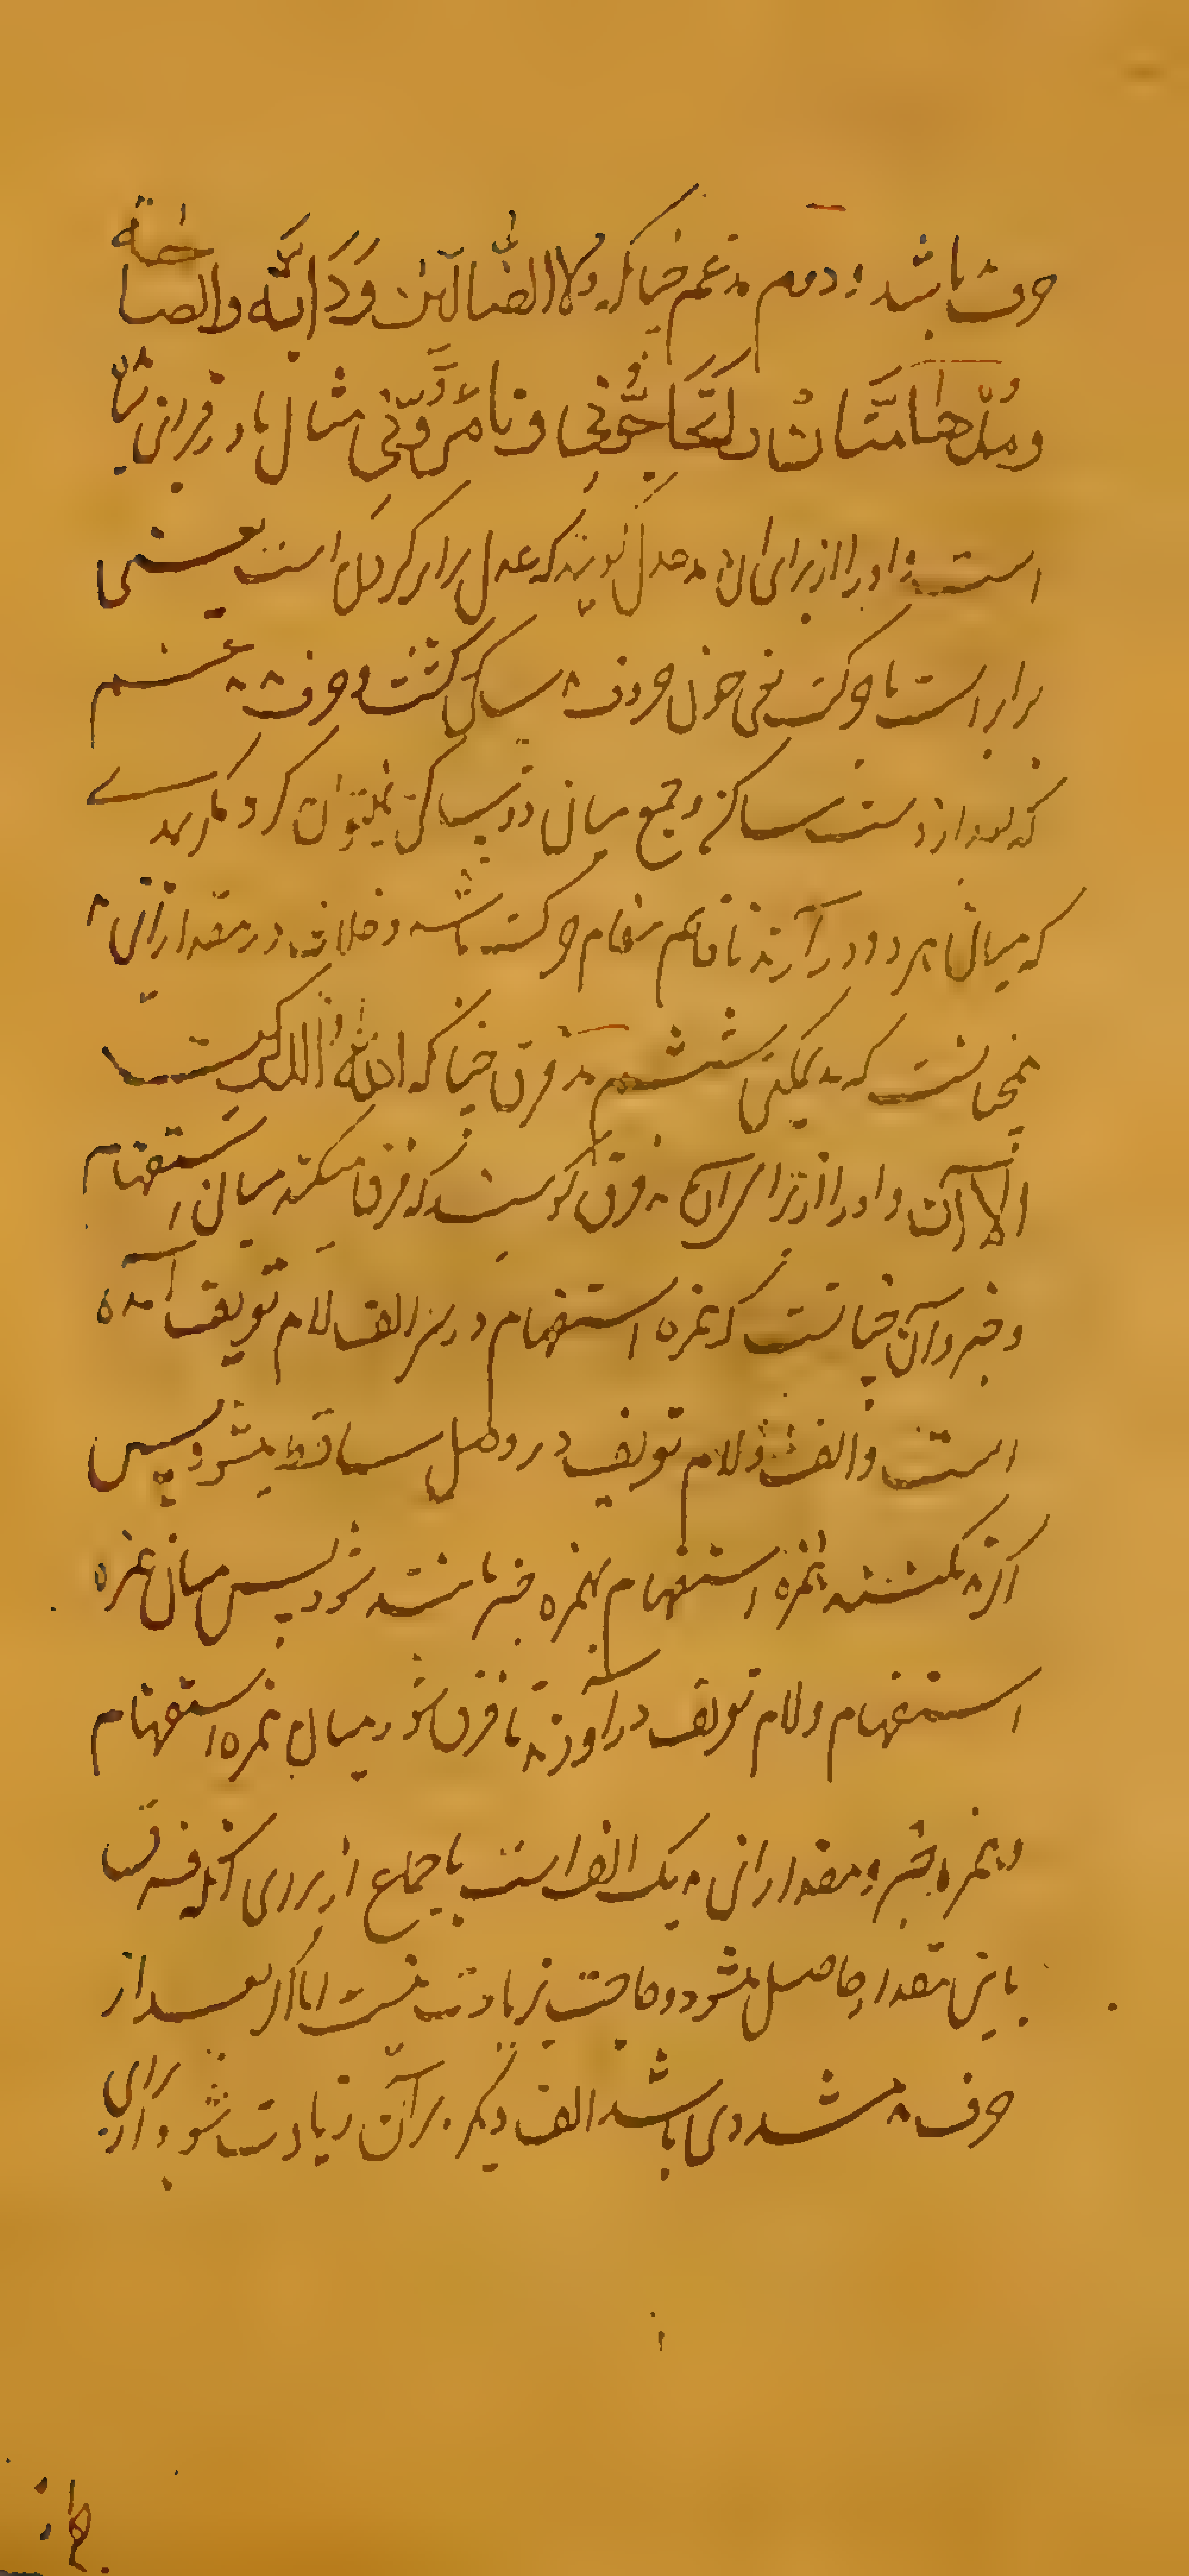 حرف باشد و دوم مدغم چنانکه ولا الضالین و دابة والصاخة
و مدهامتان و اتحاجونی و تامرونی مثال این در قران بسیار
است و او را از برای ان مد عدل گویند که عدل برابر کردن است یعنی
برابر است با حرکت یعنی چون حروف ساکن گشت و حرف مدغم
که بعد از وست ساکن و جمع میان دو ساکن نمیتوان کرد مگر مدی
که میان هر دو در آرند تا قایم مقام حرکت باشد و خلاف در مقدار این
همچنانست که مد یمکن ششم مد فرق چنانکه الله الذکرین
الآن و او را از برای آن مد فرق گویند که فرق میکند میان استفهام
و خبر و آن چنانست که همزه استفهام در سر الف لام تعریف آمده
است و الف و لام تعریف در وصل ساقط میشود پس
اگر مد نکنند همزه استفهام بهمزه خبر مانند شود پس میان همزه
استفهام و لام تعریف مد در آورند تا فرق شود میان همزه استفهام
و همزه خبر و مقدار این مد یک الف است باجماع از برای آنکه فرق
باین مقدار حاصل میشود و حاجت زیادت نیست اما اگر بعد از
حرف مد مشددی باشد الف دیگر بر آن زیادت شود از برای